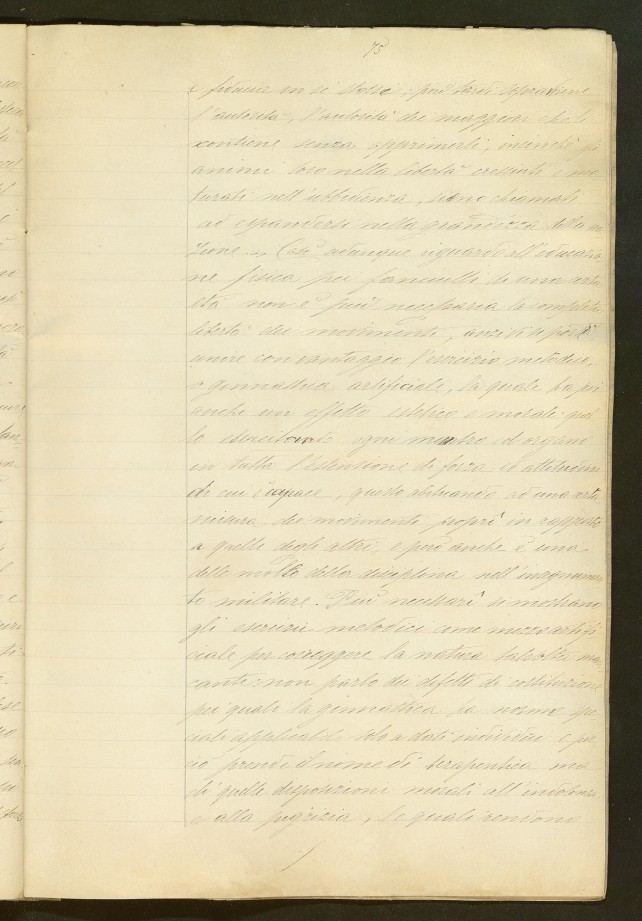 75
e fiducia in se stessi; più tardi sopraviene
l'autorità, l'autorità dei maggiori che li
contiene senza opprimerli, insinchè gli
animi loro nella libertà cresciuti e ma
turati nell'ubbidienza, siano chiamati
ad espandersi nella grandezza della a
zione. Così adunque riguardo all'educazio
ne fisica pei fanciulli di una certa
età non è più necessaria la completa
libertà dei movimenti, anzi vi si potrà
unire con vantaggio l'esercizio metodico,
o ginnastica artificiale, la quale ha poi
anche un effetto estetico e morale: quel
lo esercitando ogni membro ed organo
in tutta l'estensione di forza ed attitudini
di cui è capace, questo abituando ad una certa
misura dei movimenti propri in rapporto
a quelli degli altri, e però anche è una
delle molle della disciplina nell'insegnamen
to militare. Più necessari si mostrano
gli esercizii metodici come mezzo artifi
ciale per correggere la natura talvolta man
cante: non parlo dei difetti di costituzione
pei quali la ginnastica ha norme spe
ciali applicabili solo a dati individui e per
ciò prende il nome di terapeutica ma
di quelle disposizioni morali all'indolenza
e alla pigrizia, le quali rendono